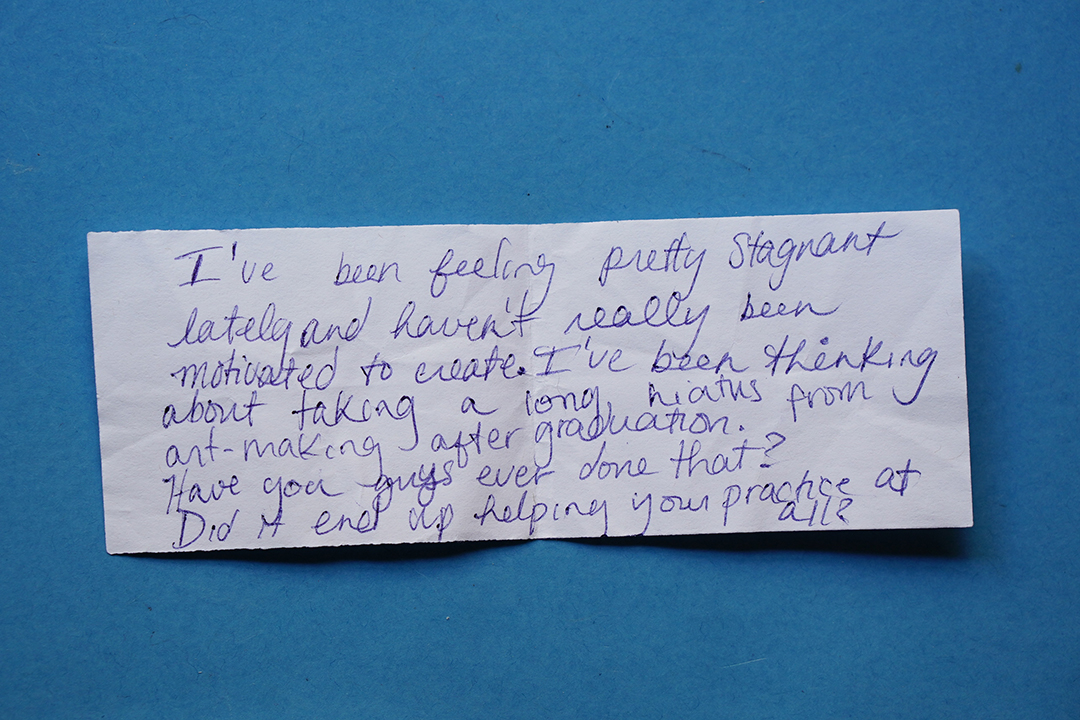 I've been feeling pretty Stagnant
lately and haven't really been
motivated to create. I've been thinking
about taking a long hiatus from
art-making after graduation.
Have you guys ever done that?
Did it end up helping your practice at
all?